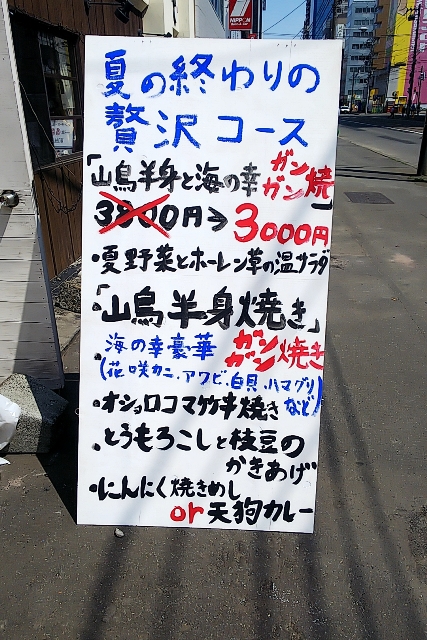 夏の終わりの
贅沢コース
「山鳥半身と海の幸ガンガン焼」
3800円→3000円
・夏野菜とホーレン草の温サラダ
・「山鳥半身焼き」
・海の幸豪華ガンガン焼き
(花咲カニ、アワビ、白貝、ハマグリなど)
・オショロコマ竹串焼き
・とうもろこしと枝豆の
かきあげ
・にんにく焼きめし
or天狗カレー
NIPPON